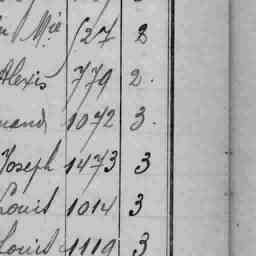 Mie 527 2
Alexis 779 2.
1072 3.
Joseph 1473 3
Louis 1014 3
Louis 1119 3